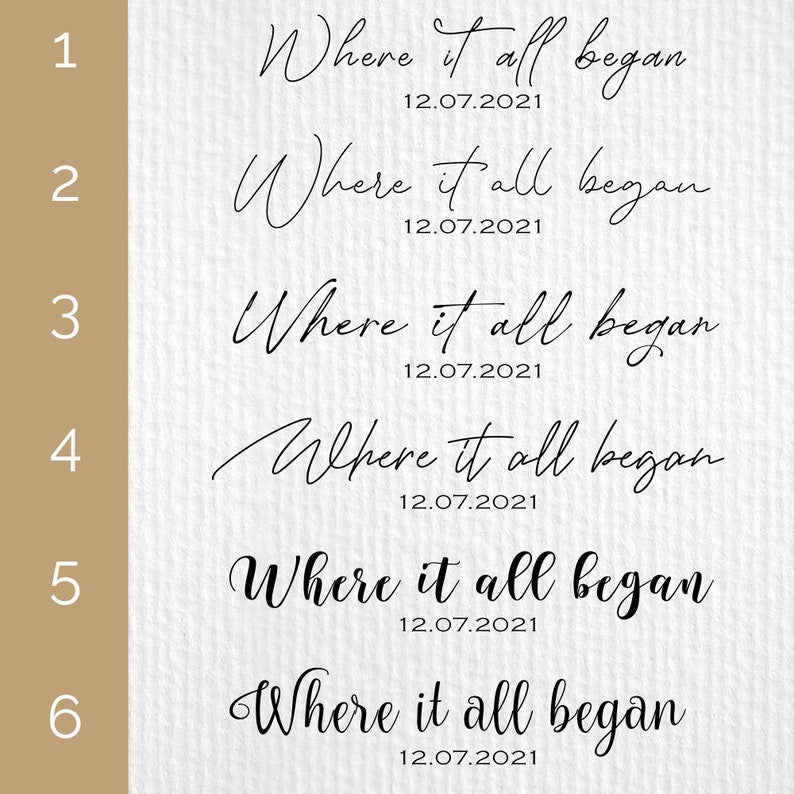 1
Where it all began
12.07.2021
2
Where it all began
12.07.2021
3
Where it all began
12.07.2021
4
Where it all began
12.07.2021
5
Where it all began
12.07.2021
6
Where it all began
12.07.2021